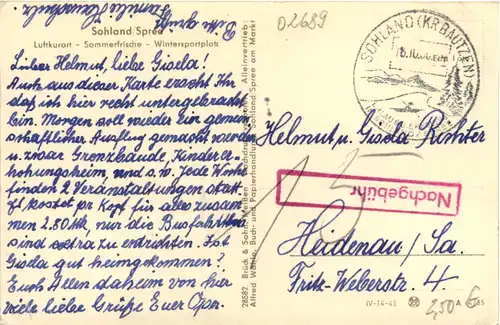 02689
Sohland/Spree
Luftkurort – Sommerfrische – Wintersportplatz
Lieber Helmut, liebe Gisela!
Auch aus dieser Karte erseht Ihr
daß ich hier recht untergebracht
bin. Morgen soll wieder ein gemein
schaftlicher Ausflug gemacht werden
u. zwar Grenzbaude, Kinderer-
holungsheim, und s.w. Jede Woche
finden 2 Veranstaltungen statt.
Es kostet pr Kopf für alles zusam
men 2.80 Mk, nur die Busfahrten
sind extra zu entrichten. Ist
Gisela gut heimgekommen?
Euch Allen daheim von hier
viele liebe Grüße Euer Opa.
Bitte
Familie
28582 Brück & Sohn, Meißen
Alleinvertrieb:
Alfred Buch- und Papierhandlung, Sohland Spree am Markt
SOHLAND (KR BAUTZEN)
Helmut u. Gisela Richter
Nachgebühr
15
Heidenau/Sa.
Fritz-Weberstr. 4.
IV-14-45
A
2,50 €